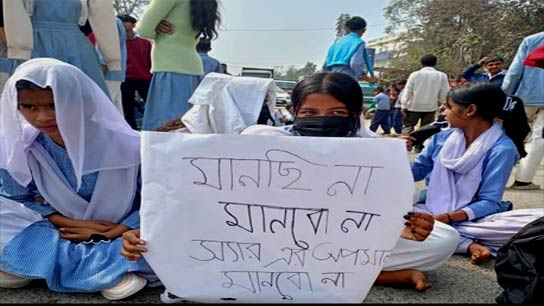 মানছি না
মানবো না
স্যার এর অপমান
মানবো না